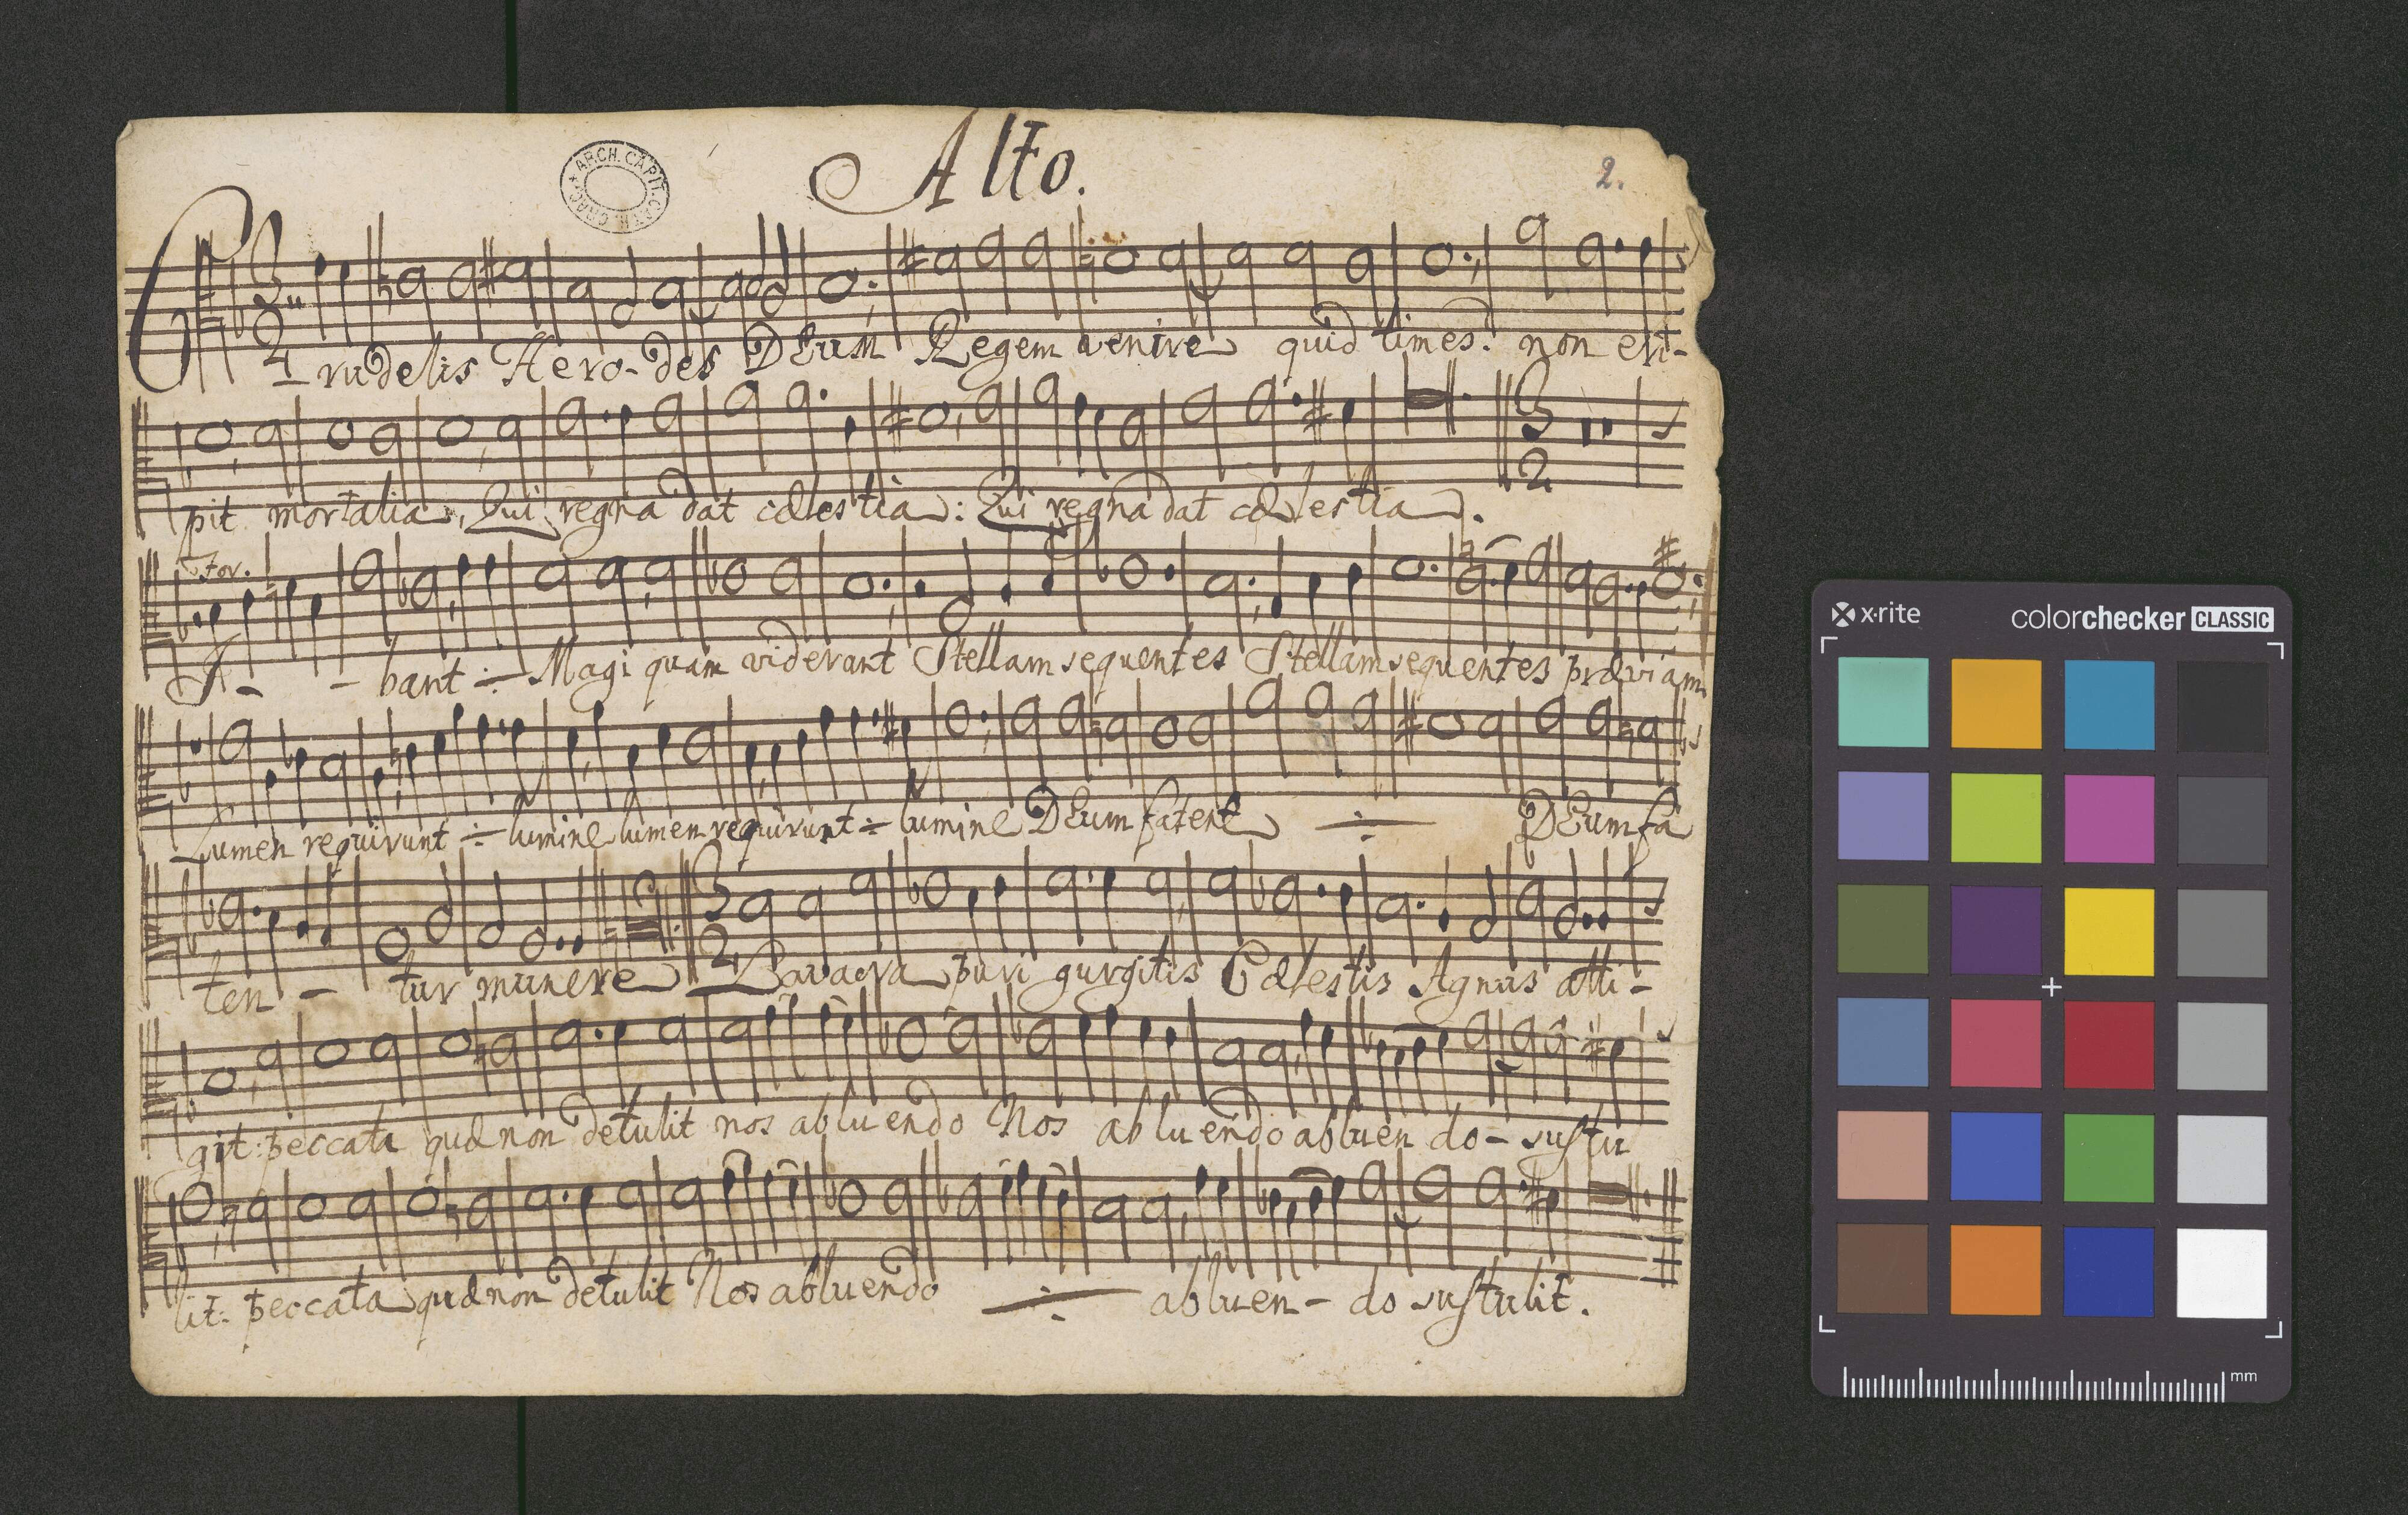 Alto.
2.
ARCH. CAPIT. CATH. CRAC.
Crudelis Hero-des DEum Regem venire quid times? non eri-
pit mortalia, Qui regna dat cælestia: Qui regna dat cælestia.
For.
I - - bant ÷ Magi quam viderant Stellam sequentes Stellam sequentes præviam
Lumen requirunt ÷ lumine lumen requirunt ÷ lumine DEum fatent ÷ DEum fa
ten - tur munere Lavacra puri gurgitis Cælestis Agnus atti-
git: peccata quæ non detulit nos abluendo Nos abluendo abluen do - sustu
lit: peccata quæ non detulit Nos abluendo ÷ abluen - do sustulit.
x·rite
colorchecker CLASSIC
mm